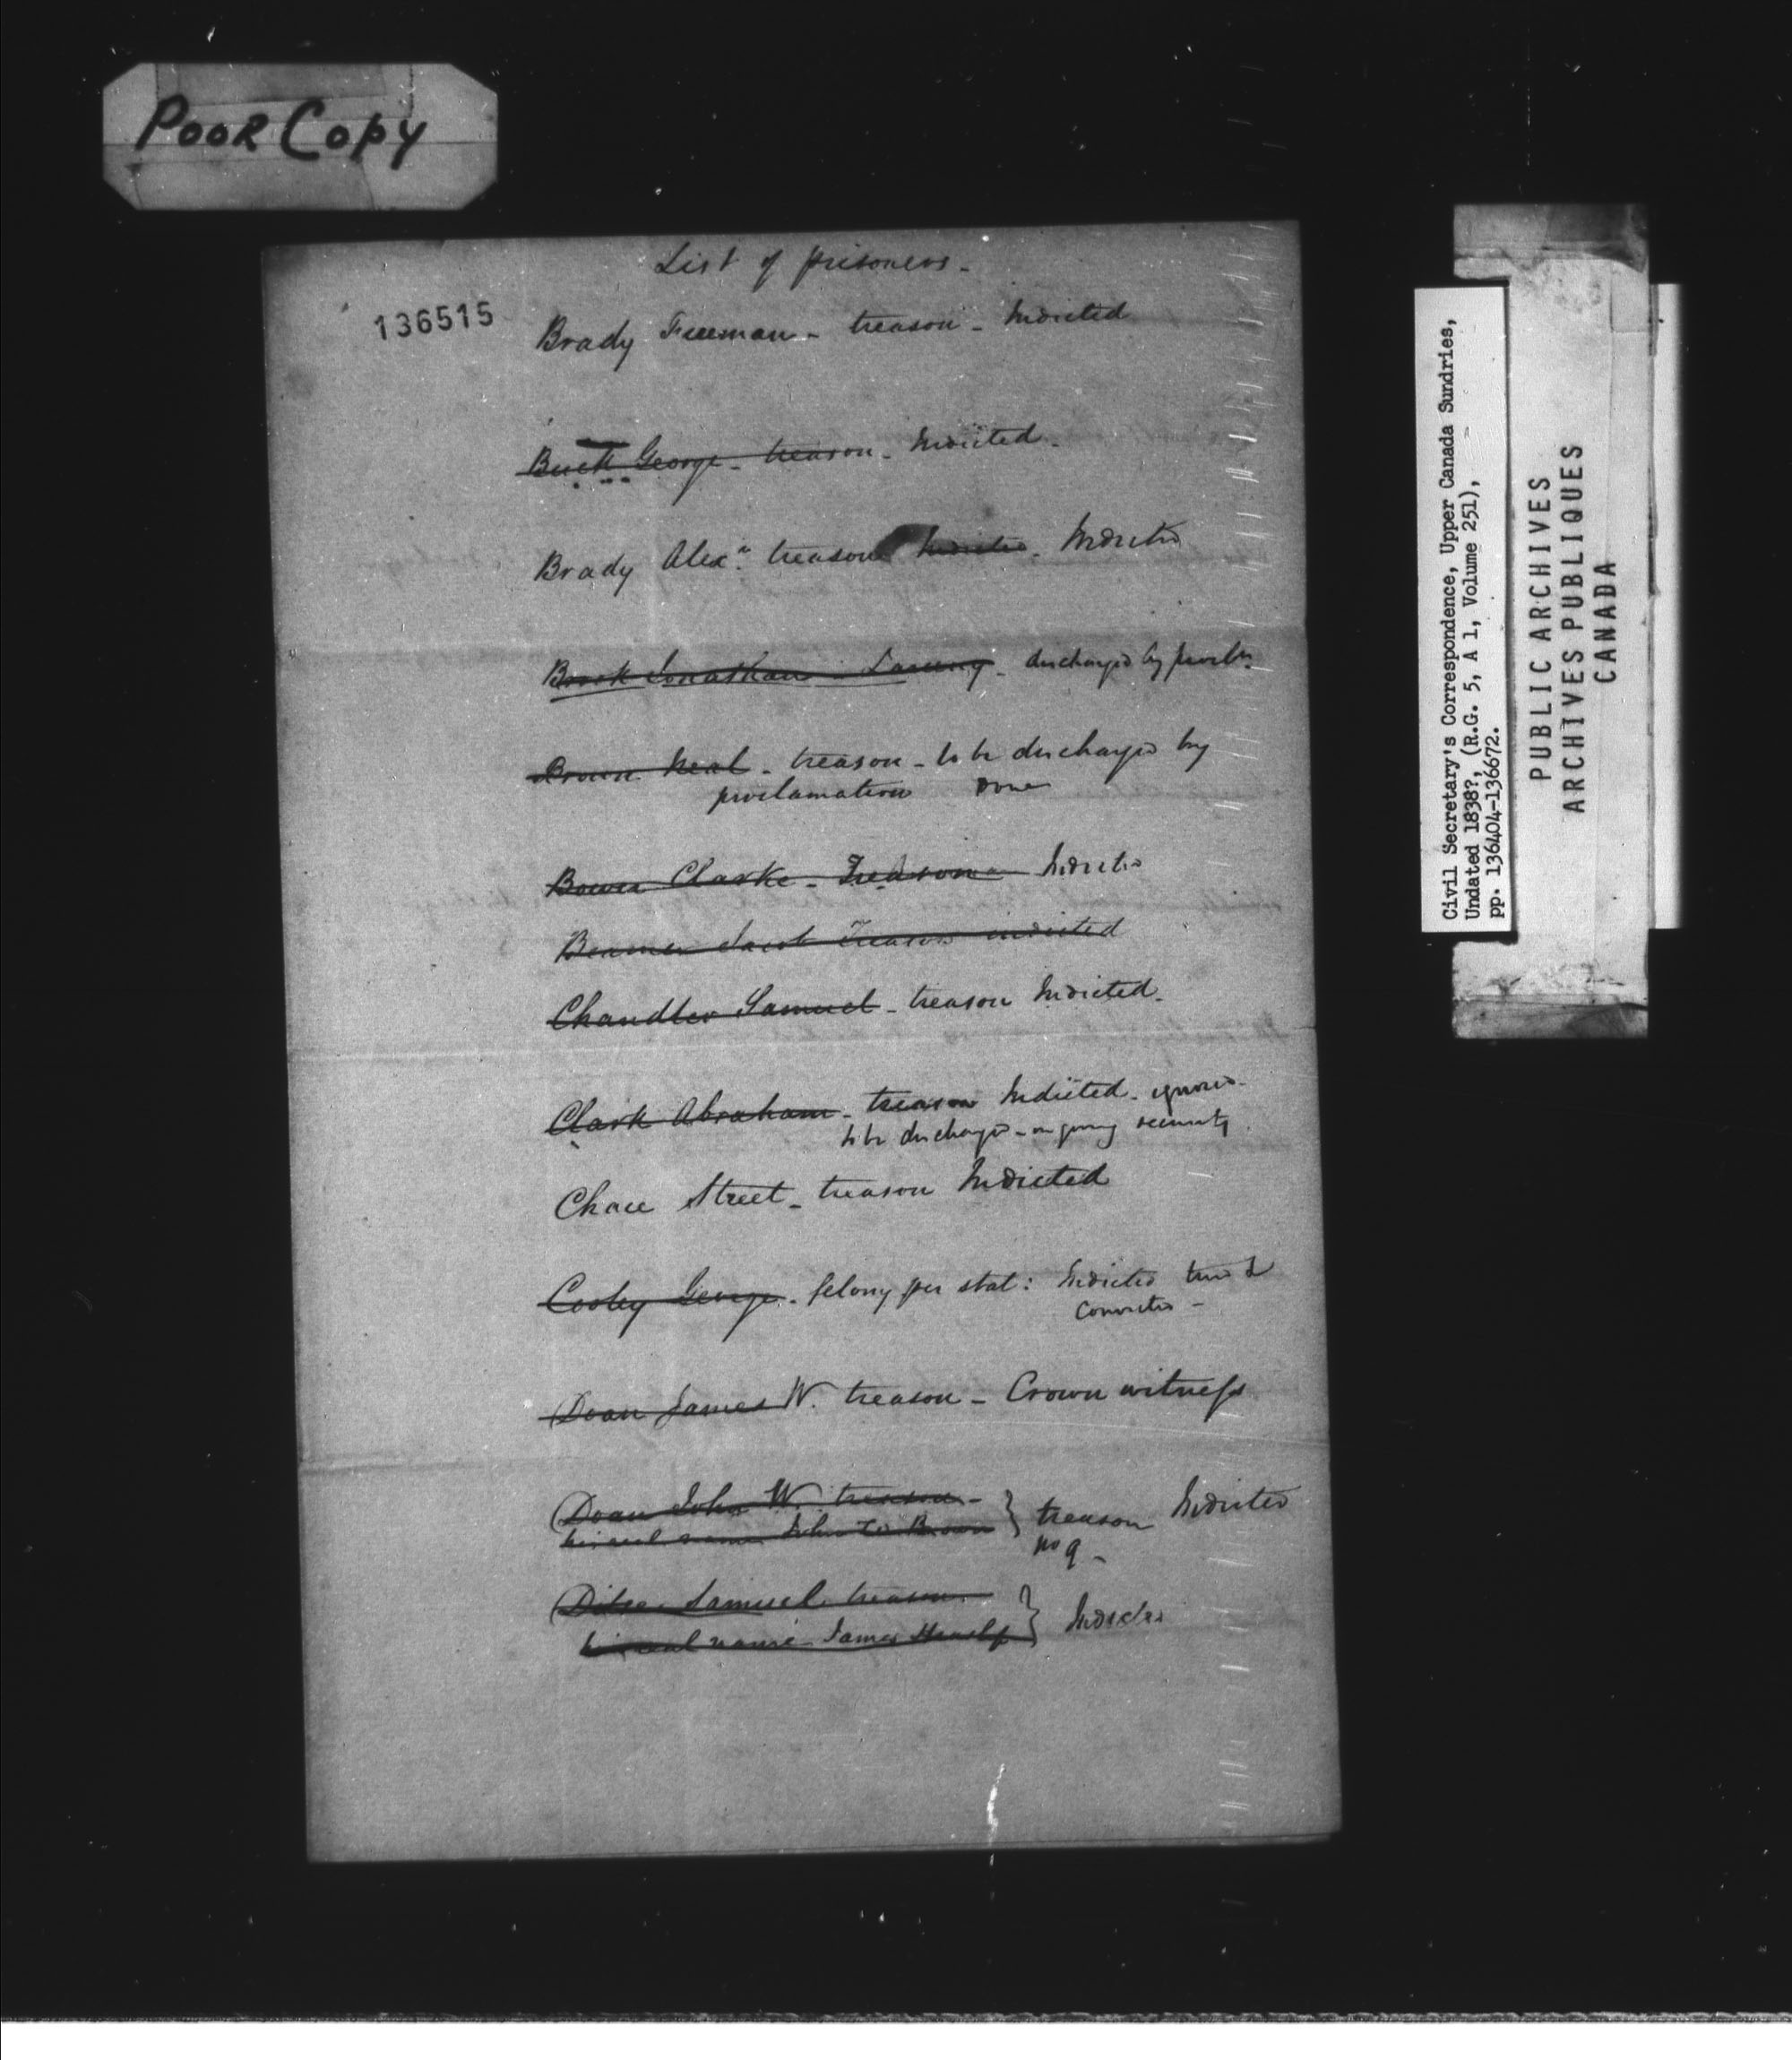 Poor Copy
List of prisoners -
136515
Brady Freeman - treason - Indicted
Buck George - treason - Indicted -
Brady Alexr. treason Indicted - Indicted
Brook Jonathan - Larceny - discharged by procln.
Brown Neal - treason - to be discharged by
proclamation Done
Bowen Clarke - Treason Indicted
Beamer Jacob Treason indicted
Chandler Samuel - treason Indicted -
Clark Abraham - treason Indicted - ignored -
to be discharged - on giving security
Chace Street - treason Indicted
Cooley George - felony per stat: Indicted tried &
convicted -
Doan James W. treason - Crown witness
Doan John W. treason - } treason Indicted
his real name John W Brown
No 9 -
Samuel treason } Indicted
his real name James
Civil Secretary's Correspondence, Upper Canada Sundries,
Undated 1838?, (R.G. 5, A 1, Volume 251),
pp. 136404-136672.
PUBLIC ARCHIVES
ARCHIVES PUBLIQUES
CANADA